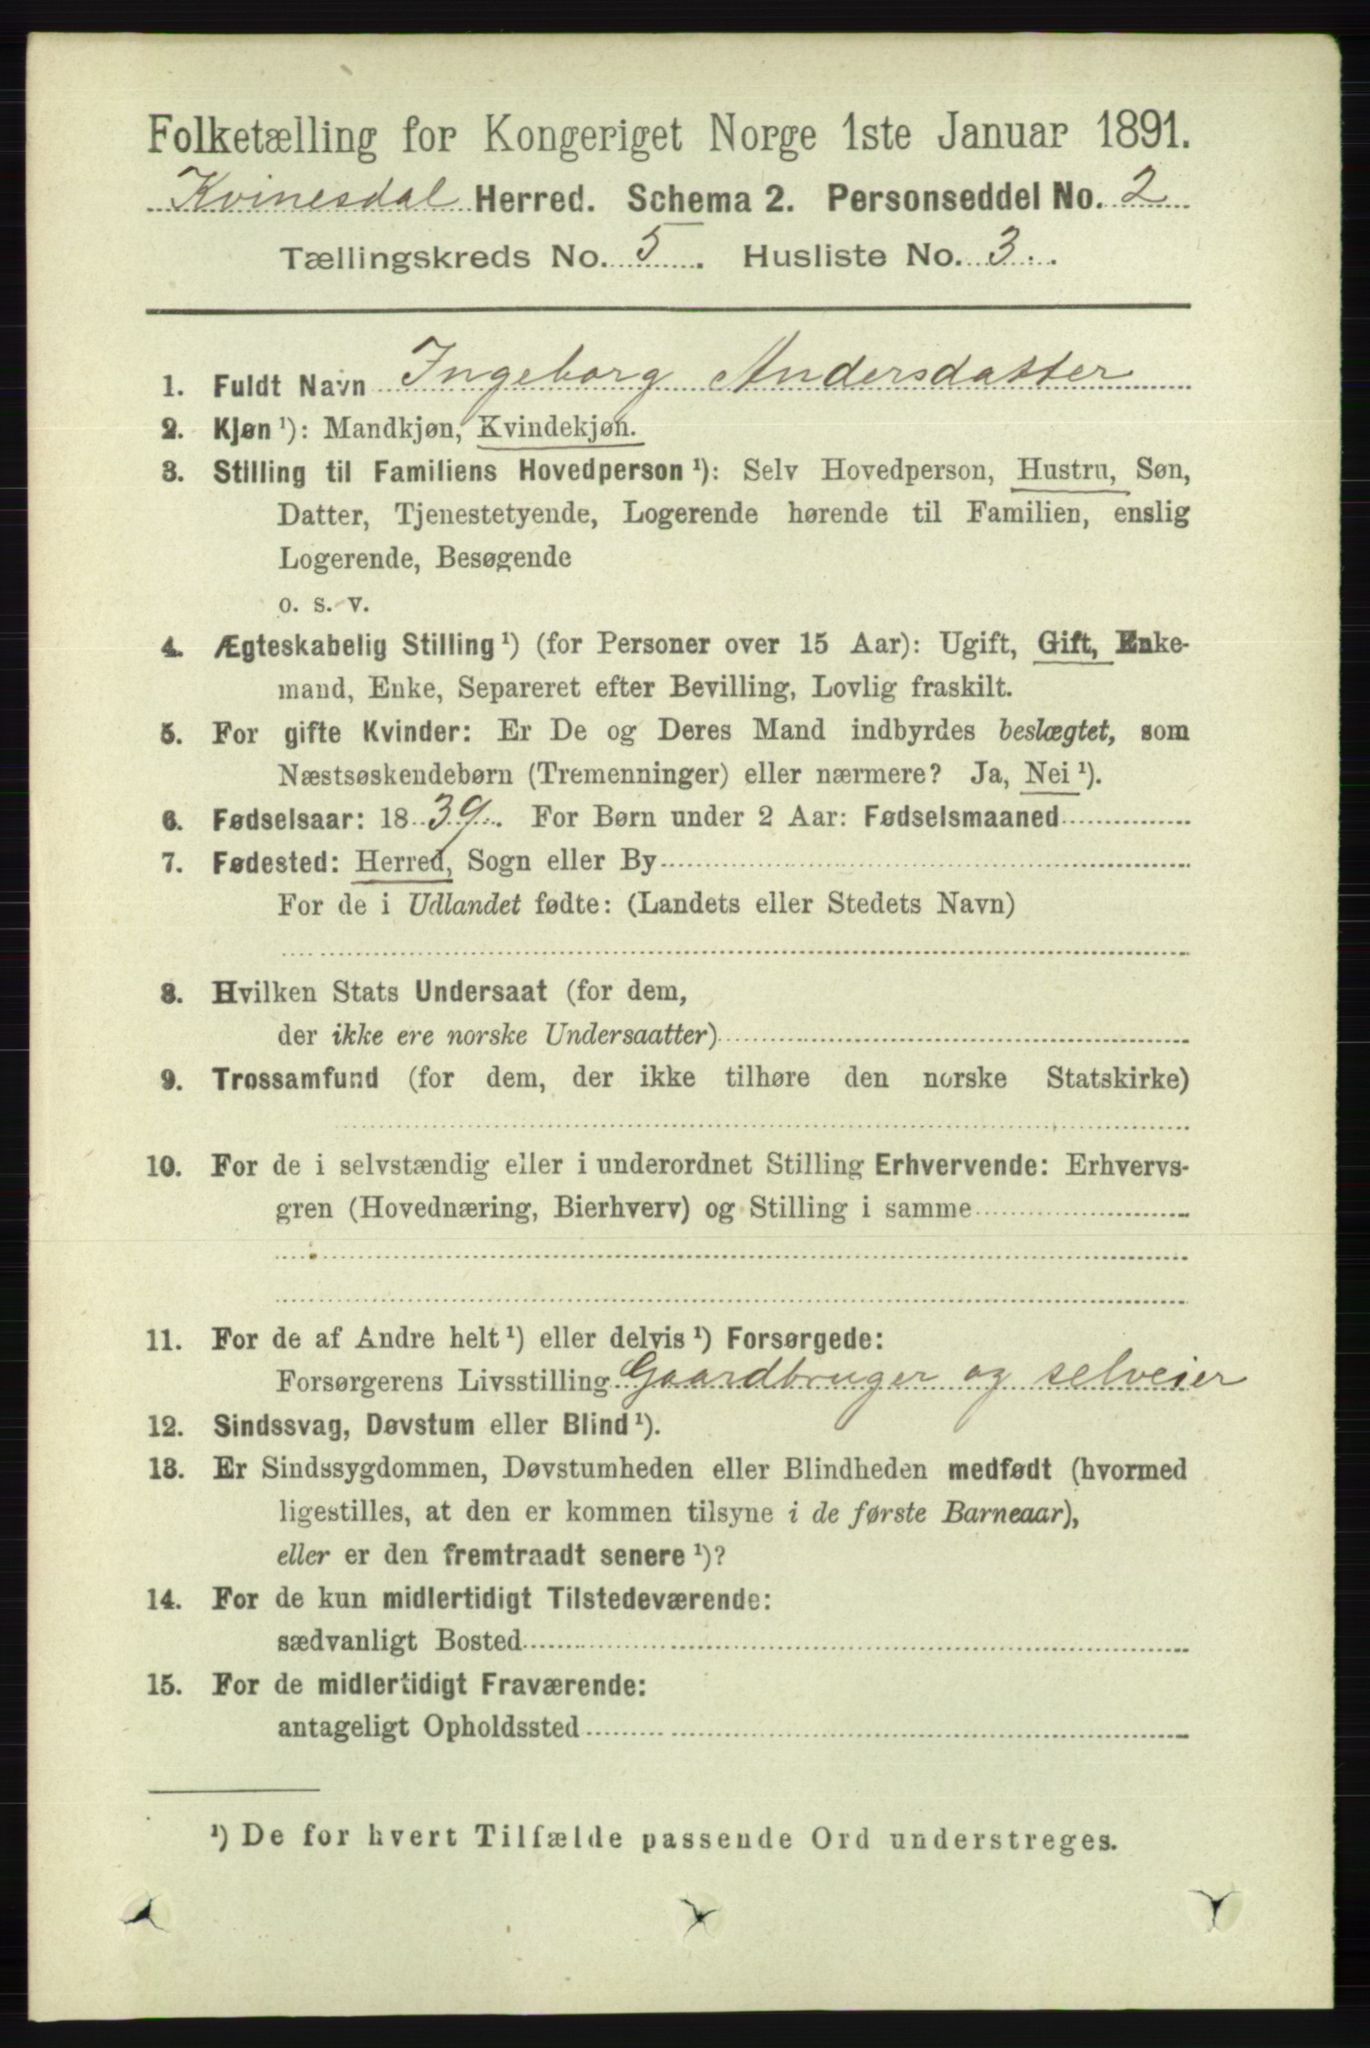 Folketælling for Kongeriget Norge 1ste Januar 1891.
Kvinesdal Herred. Schema 2. Personseddel No. 2
Tællingskreds No. 5. Husliste No. 3.
1. Fuldt Navn Ingeborg Andersdatter
2. Kjøn¹): Mandkjøn, Kvindekjøn.
3. Stilling til Familiens Hovedperson¹): Selv Hovedperson, Hustru, Søn,
Datter, Tjenestetyende, Logerende hørende til Familien, enslig
Logerende, Besøgende
o. s. v.
4. Ægteskabelig Stilling¹) (for Personer over 15 Aar): Ugift, Gift, Enke-
mand, Enke, Separeret efter Bevilling, Lovlig fraskilt.
5. For gifte Kvinder: Er De og Deres Mand indbyrdes beslægtet, som
Næstsøskendebørn (Tremenninger) eller nærmere? Ja, Nei¹).
6. Fødselsaar: 1839. For Børn under 2 Aar: Fødselsmaaned
7. Fødested: Herred, Sogn eller By
For de i Udlandet fødte: (Landets eller Stedets Navn)
8. Hvilken Stats Undersaat (for dem,
der ikke ere norske Undersaatter)
9. Trossamfund (for dem, der ikke tilhøre den norske Statskirke)
10. For de i selvstændig eller i underordnet Stilling Erhvervende: Erhvervs-
gren (Hovednæring, Bierhverv) og Stilling i samme
11. For de af Andre helt¹) eller delvis¹) Forsørgede:
Forsørgerens Livsstilling Gaardbruger og selveier
12. Sindssvag, Døvstum eller Blind¹).
13. Er Sindssygdommen, Døvstumheden eller Blindheden medfødt (hvormed
ligestilles, at den er kommen tilsyne i de første Barneaar),
eller er den fremtraadt senere¹)?
14. For de kun midlertidigt Tilstedeværende:
sædvanligt Bosted
15. For de midlertidigt Fraværende:
antageligt Opholdssted
¹) De for hvert Tilfælde passende Ord understreges.